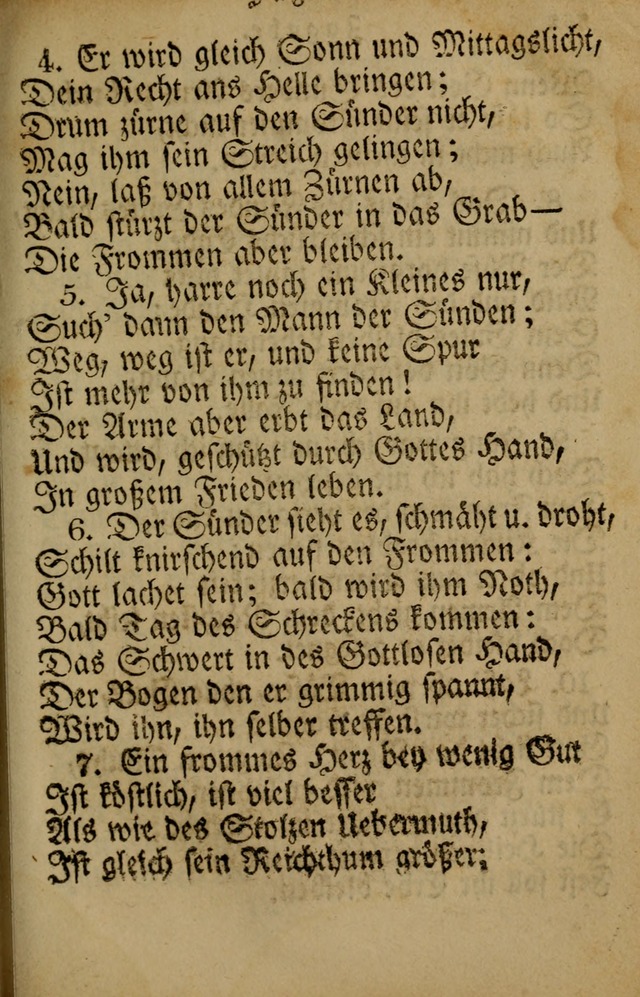 4. Er wird gleich Sonn und Mittagslicht,
Dein Recht ans Helle bringen;
Drum zürne auf den Sünder nicht,
Mag ihm sein Streich gelingen;
Nein, laß von allem Zürnen ab,
Bald stürzt der Sünder in das Grab—
Die Frommen aber bleiben.
5. Ja, harre noch ein Kleines nur,
Such' dann den Mann der Sünden;
Weg, weg ist er, und keine Spur
Ist mehr von ihm zu finden!
Der Arme aber erbt das Land,
Und wird, geschützt durch Gottes Hand,
In großem Frieden leben.
6. Der Sünder sieht es, schmäht u. droht,
Schilt knirschend auf den Frommen:
Gott lachet sein; bald wird ihm Noth,
Bald Tag des Schreckens kommen:
Das Schwert in des Gottlosen Hand,
Der Bogen den er grimmig spannt,
Wird ihn, ihn selber treffen.
7. Ein frommes Herz bey wenig Gut
Ist köstlich, ist viel besser
Als wie des Stolzen Uebermuth,
Ist gleich sein Reichthum größer;